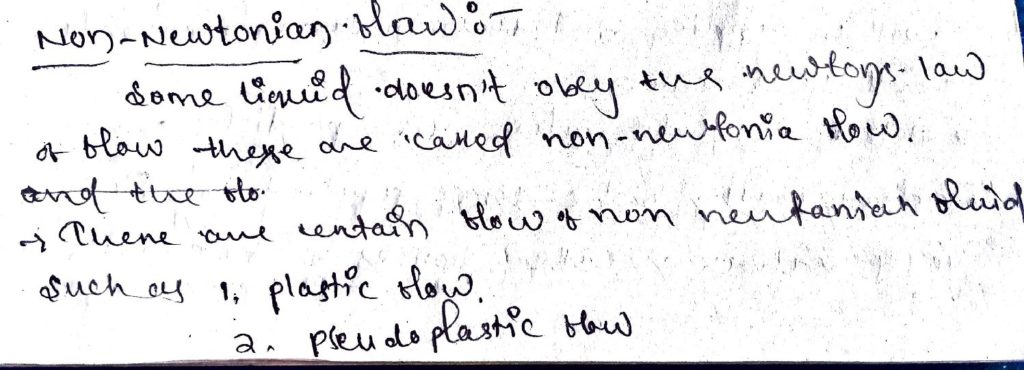 Non-Newtonian flow :-
Some liquid doesn't obey the newtons law
of flow these are called non-newtonia flow.
and the flo.
→ There are certain flow of non neutanian fluid
such as 1, plastic flow.
2. pseudoplastic flow